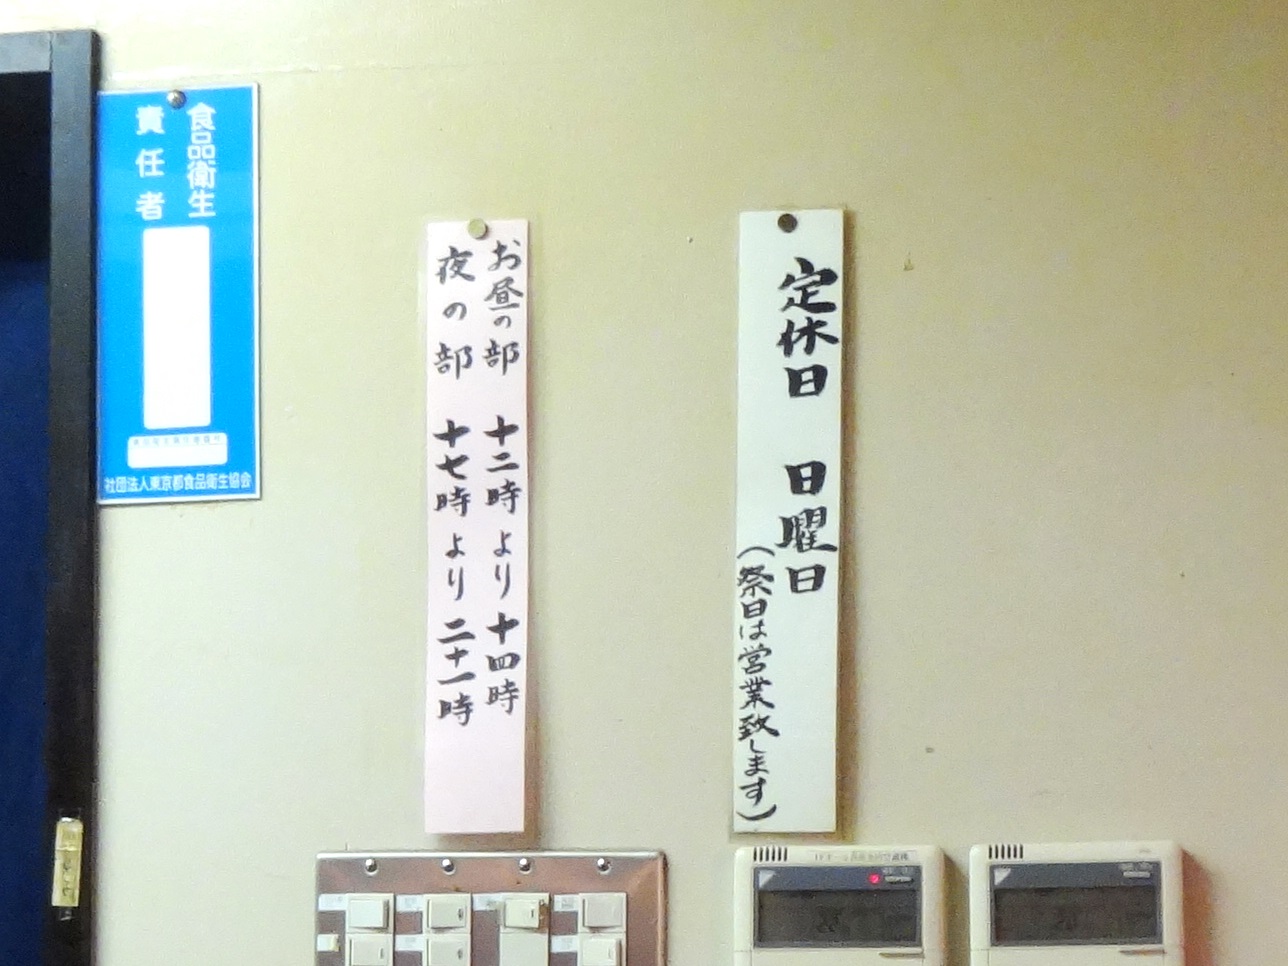 食品衛生
責任者
社団法人東京都食品衛生協会
お昼の部 十二時より十四時
夜の部 十七時より二十一時
定休日 日曜日
(祭日は営業致します)